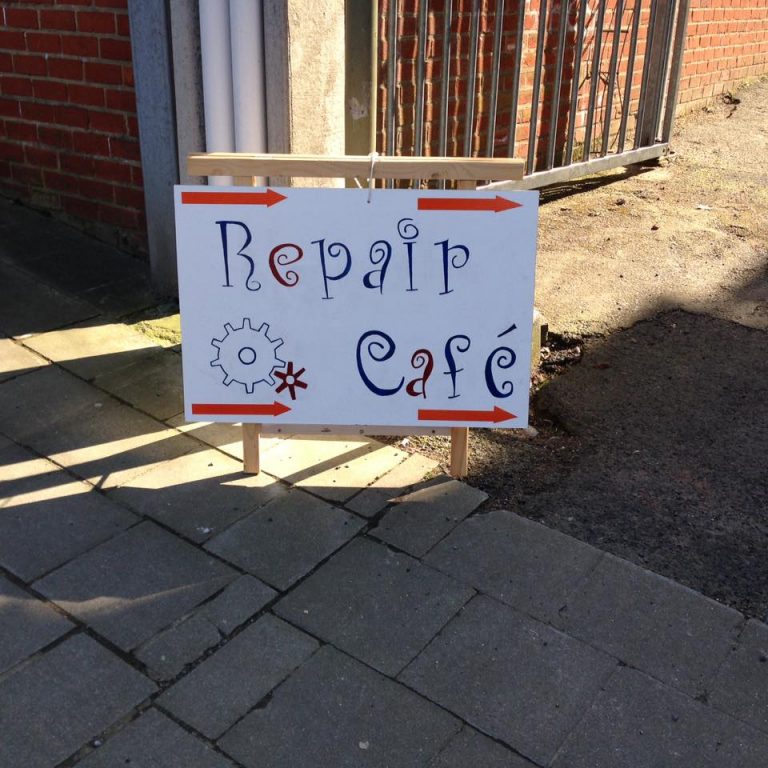 Repair
Café